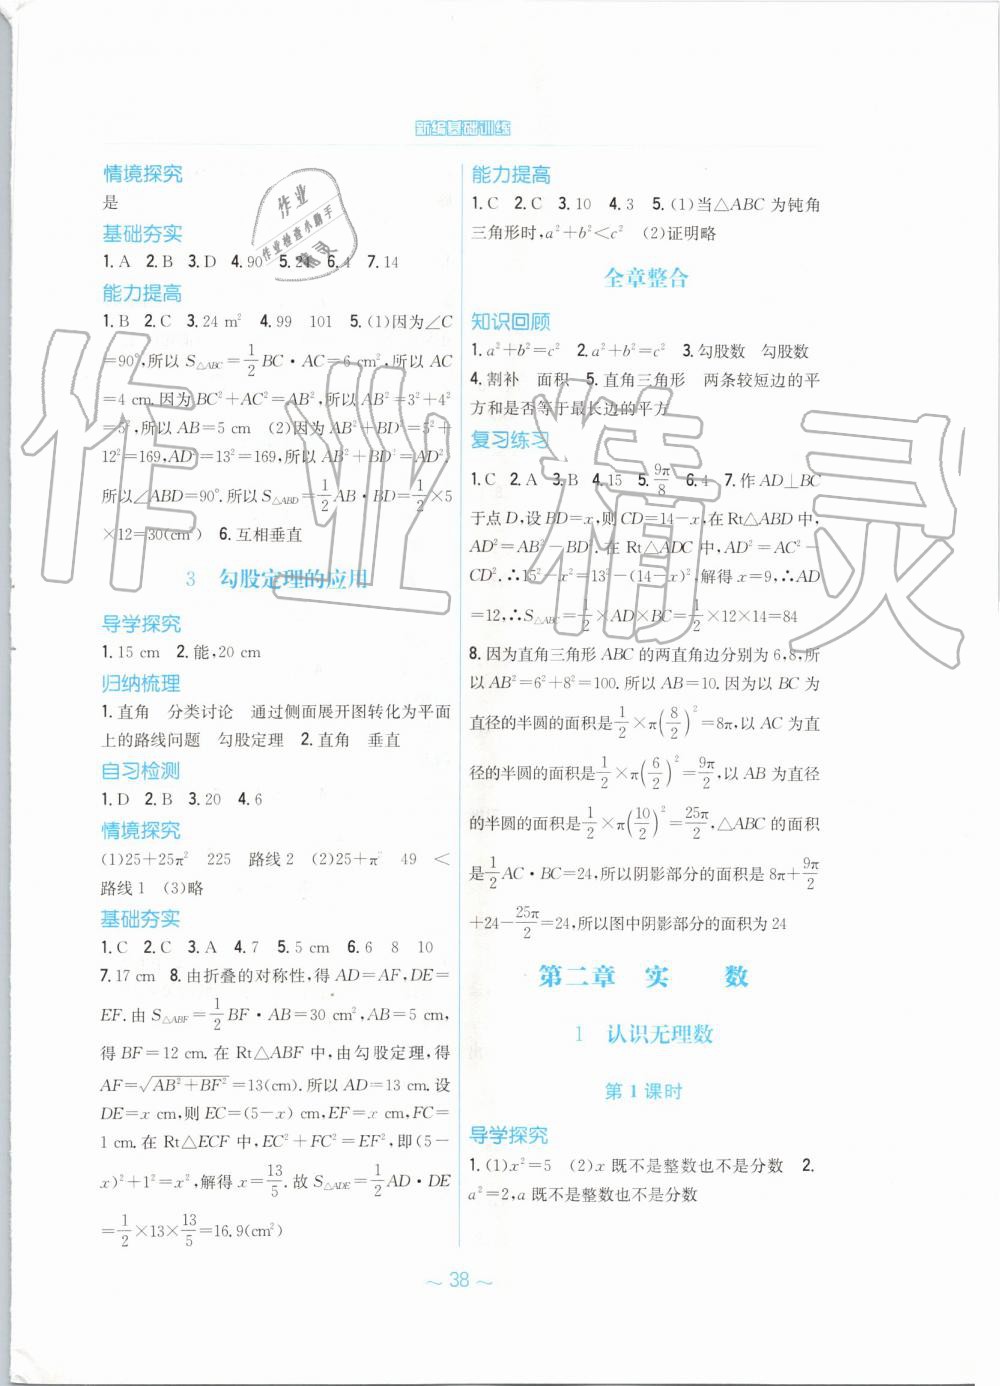 新编基础训练
情境探究
是
基础夯实
1.A 2.B 3.D 4.90 5.21 6.4 7.14
能力提高
1.B 2.C 3.24 m² 4.99 101 5.(1)因为∠C
=90°,所以 S△ABC=1/2 BC·AC=6 cm²,所以 AC
=4 cm.因为 BC²+AC²=AB²,所以 AB²=3²+4²
=5²,所以 AB=5 cm (2)因为 AB²+BD²=5²+
12²=169,AD²=13²=169,所以 AB²+BD²=AD²,
所以∠ABD=90°.所以 S△ABD=1/2 AB·BD=1/2×5
×12=30(cm²) 6.互相垂直
3 勾股定理的应用
导学探究
1.15 cm 2.能,20 cm
归纳梳理
1.直角 分类讨论 通过侧面展开图转化为平面
上的路线问题 勾股定理 2.直角 垂直
自习检测
1.D 2.B 3.20 4.6
情境探究
(1)25+25π² 225 路线2 (2)25+π² 49 <
路线1 (3)略
基础夯实
1.C 2.C 3.A 4.7 5.5 cm 6.6 8 10
7.17 cm 8.由折叠的对称性,得 AD=AF,DE=
EF.由 S△ABF=1/2 BF·AB=30 cm²,AB=5 cm,
得 BF=12 cm.在 Rt△ABF 中,由勾股定理,得
AF=√(AB²+BF²)=13(cm).所以 AD=13 cm.设
DE=x cm,则 EC=(5-x) cm,EF=x cm,FC=
1 cm.在 Rt△ECF 中,EC²+FC²=EF²,即(5-
x)²+1²=x²,解得 x=13/5.故 S△ADE=1/2 AD·DE
=1/2×13×13/5=16.9(cm²)
能力提高
1.C 2.C 3.10 4.3 5.(1)当△ABC 为钝角
三角形时,a²+b²<c² (2)证明略
全章整合
知识回顾
1.a²+b²=c² 2.a²+b²=c² 3.勾股数 勾股数
4.割补 面积 5.直角三角形 两条较短边的平
方和是否等于最长边的平方
复习练习
1.C 2.A 3.B 4.15 5.9π/8 6.4 7.作 AD⊥BC
于点 D,设 BD=x,则 CD=14-x,在 Rt△ABD 中,
AD²=AB²-BD².在 Rt△ADC 中,AD²=AC²-
CD².∴15²-x²=13²-(14-x)²,解得 x=9,∴AD
=12,∴S△ABC=1/2×AD×BC=1/2×12×14=84
8.因为直角三角形 ABC 的两直角边分别为 6,8,所
以 AB²=6²+8²=100.所以 AB=10.因为以 BC 为
直径的半圆的面积是1/2×π(8/2)²=8π,以 AC 为直
径的半圆的面积是1/2×π(6/2)²=9π/2,以 AB 为直径
的半圆的面积是1/2×π(10/2)²=25π/2,△ABC 的面积
是1/2 AC·BC=24,所以阴影部分的面积是 8π+9π/2
+24-25π/2=24,所以图中阴影部分的面积为 24
第二章 实 数
1 认识无理数
第1课时
导学探究
1.(1)x²=5 (2)x 既不是整数也不是分数 2.
a²=2,a 既不是整数也不是分数
~ 38 ~
作业
作业检查小助手
精灵
作业精灵